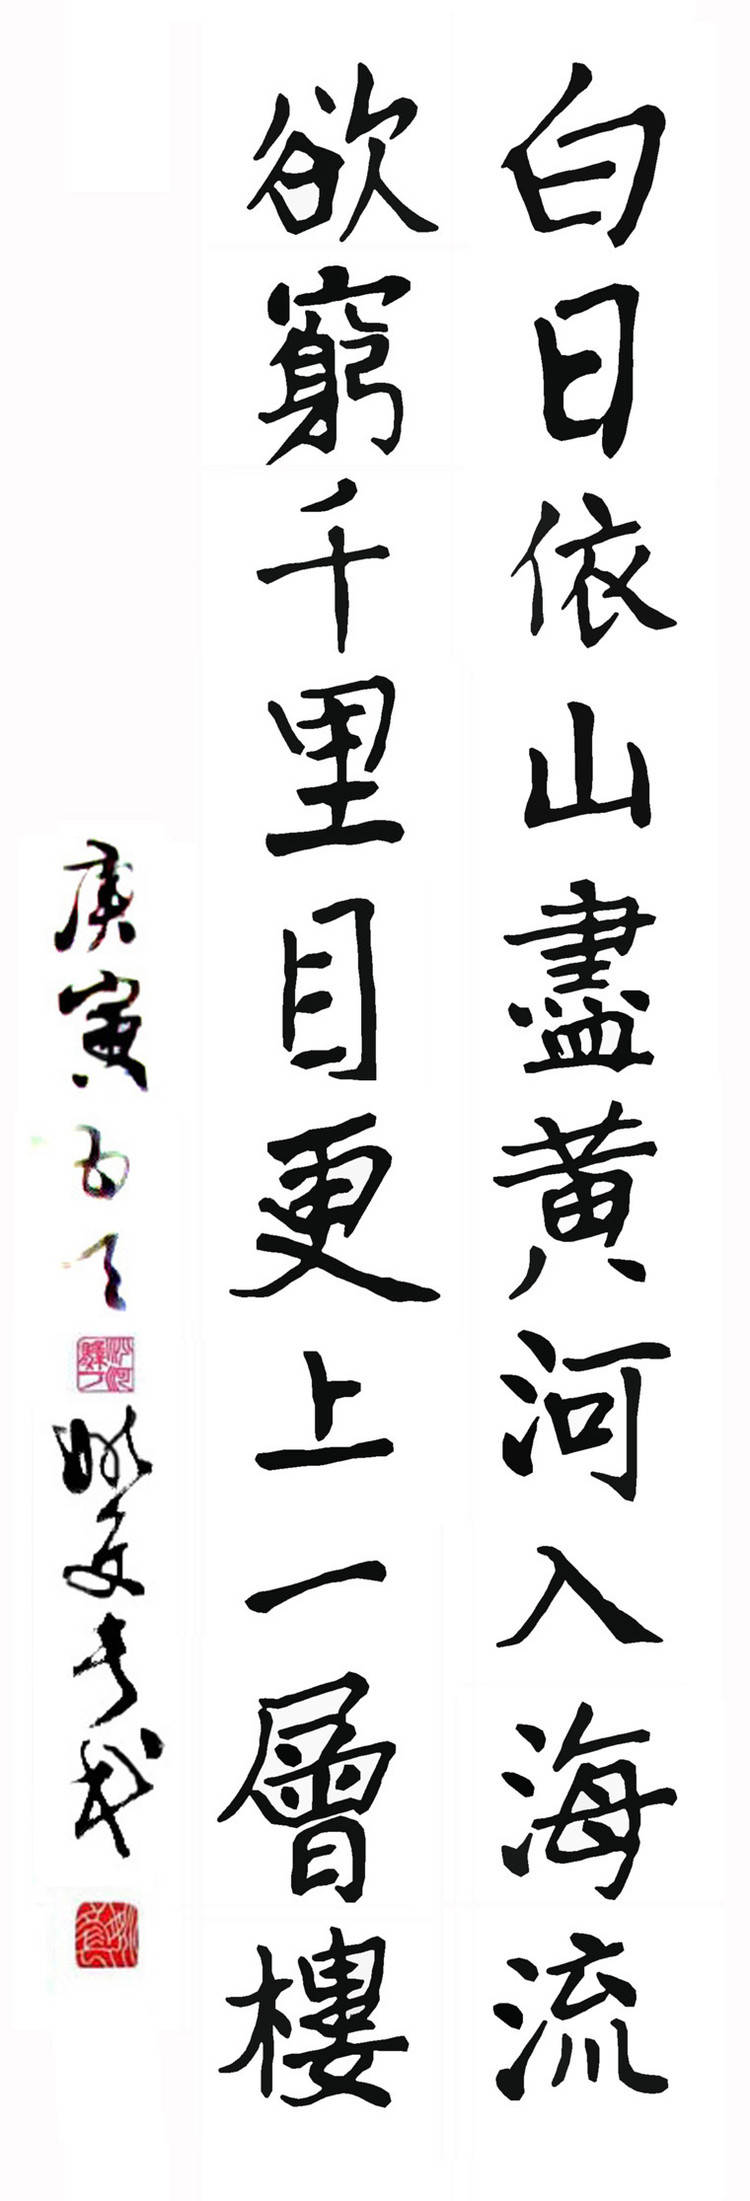 白日依山盡黄河入海流
欲窮千里目更上一層樓
庚寅